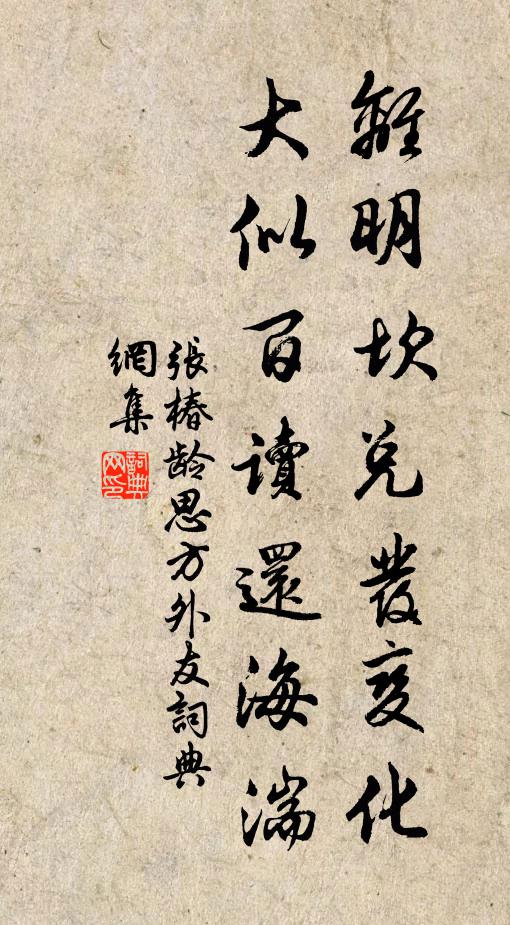 離明坎兑發變化
大似百讀還海湍
張椿齡思方外友詞典
網集
詞典
网印